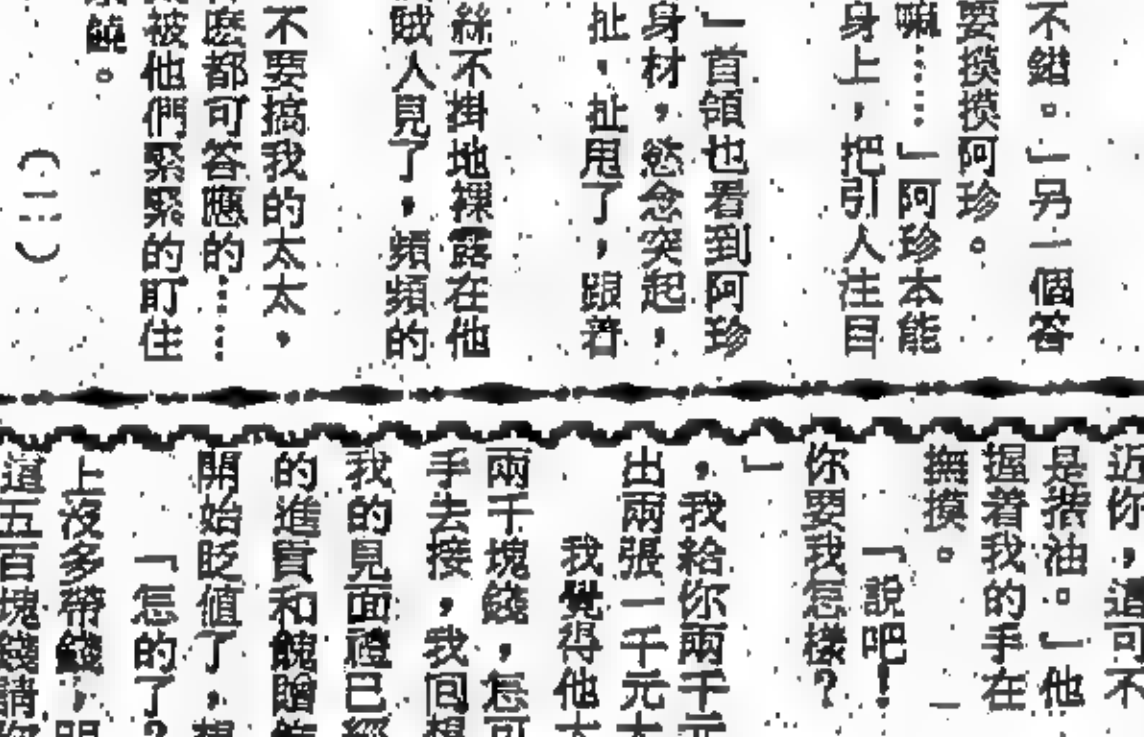 不錯。」另一個答
要摸摸阿珍。
嘛……」阿珍本能
身上，把引人注目
」首領也看到阿珍
身材，慾念突起，
扯，扯甩了，跟著
絲不掛地裸露在他
賊人見了，頻頻的
不要搞我的太太，
麼都可答應的……
被他們緊緊的盯住
饒。
（二）
近你，這可不
是揩油。」他
握着我的手在
撫摸。
「說吧！
你要我怎樣？
」
，我給你兩千元
出兩張一千元
我覺得他
兩千塊錢，怎可
手去接，我回想
我的見面禮已經
的進賞和餽贈
開始貶值了，
「怎的了？
上沒多帶錢，明
這五百塊錢請你